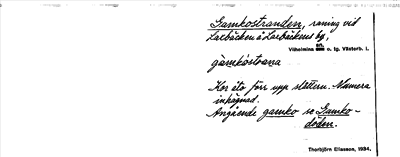 Gamkostranden, raning vid
Larbäcken å Larbäckens by,
Vilhelmina sn. o. lg. Västerb. l.
gàmkóstrana
Kor äto förr upp slåttern. Numera
inhägnad.
Angående gamko se Gamko-
döden.
Thorbjörn Eliasson, 1934.